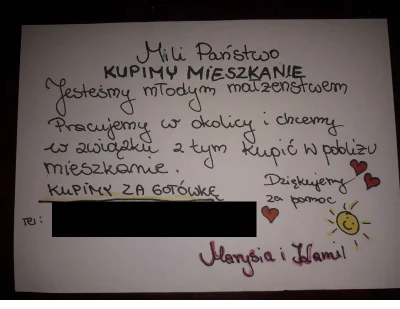 Mili Państwo
KUPIMY MIESZKANIE
Jesteśmy młodym małżeństwem
Pracujemy w okolicy i chcemy
w związku z tym kupić w pobliżu
mieszkanie.
KUPIMY ZA GOTÓWKĘ
Dziękujemy
za pomoc
tel:
Marysia i Kamil